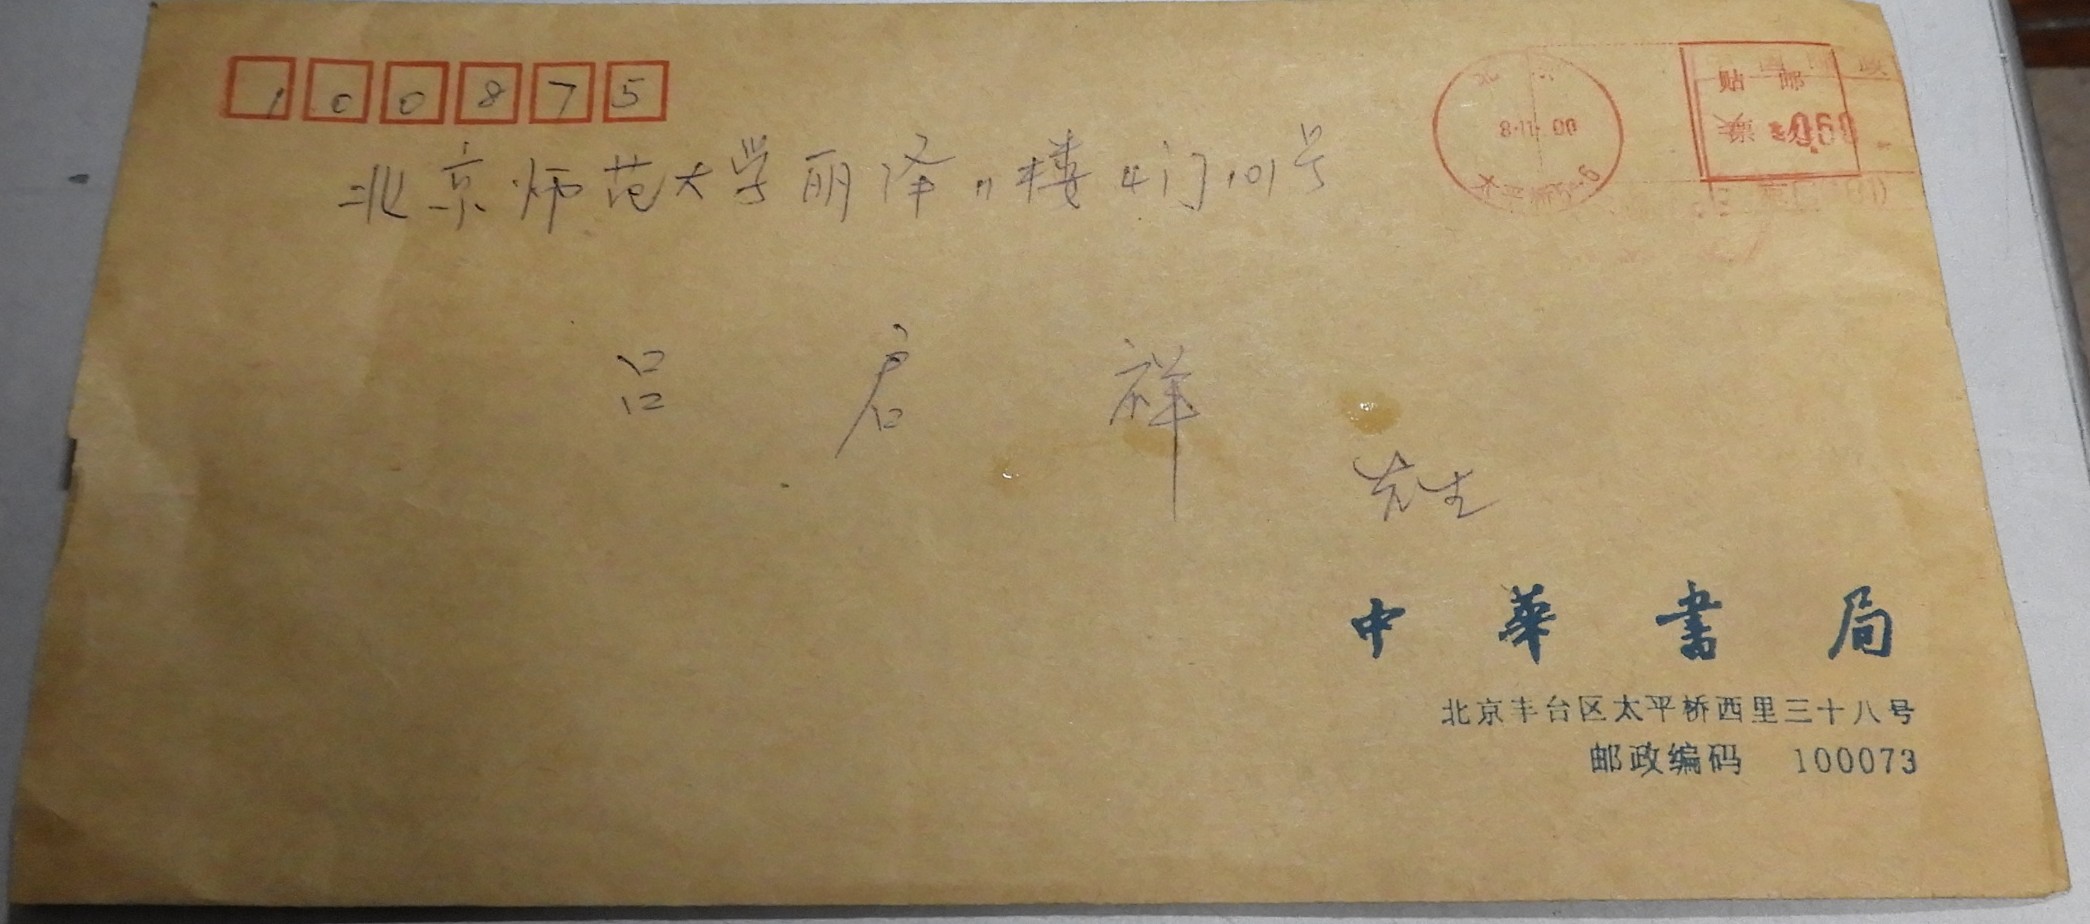 100875
北京师范大学丽泽11楼4门101号
吕启祥
先生
北京
8·11·00
太平桥
贴邮
票
060
中華書局
北京丰台区太平桥西里三十八号
邮政编码 100073